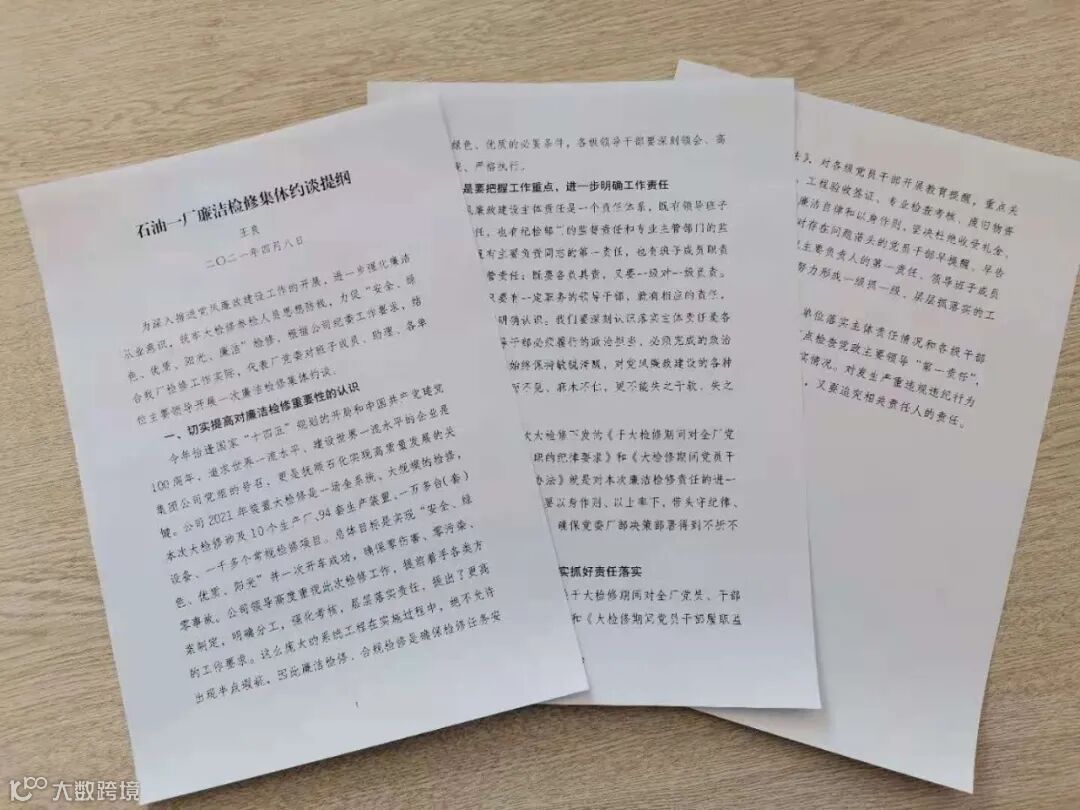 石油一厂廉洁检修集体约谈提纲
王良
二〇二一年四月八日
为深入推进党风廉政建设工作的开展，进一步强化廉洁
从业意识，筑牢大检修参检人员思想防线，力促“安全、绿
色、优质、阳光、廉洁”检修，根据公司纪委工作要求，结
合我厂检修工作实际，代表厂党委对班子成员、助理、各单
位主要领导开展一次廉洁检修集体约谈。
一、切实提高对廉洁检修重要性的认识
今年恰逢国家“十四五”规划的开局和中国共产党建党
100周年，追求世界一流水平、建设世界一流水平的企业是
集团公司党组的号召，更是抚顺石化实现高质量发展的关
键。公司2021年装置大检修是一场全系统、大规模的检修，
本次大检修涉及10个生产厂、94套生产装置、一万多台(套)
设备、一千多个常规检修项目。总体目标是实现“安全、绿
色、优质、阳光”并一次开车成功，确保零伤害、零污染、
零事故。公司领导高度重视此次检修工作，提前着手各类方
案制定，明确分工，强化考核，层层落实责任，提出了更高
的工作要求。这么庞大的系统工程在实施过程中，绝不允许
出现半点瑕疵，因此廉洁检修、合规检修是确保检修任务安
1
绿色、优质的必要条件，各级领导干部要深刻领会、高
严格执行。
是要把握工作重点，进一步明确工作责任
风廉政建设主体责任是一个责任体系，既有领导班子
任，也有纪检部门的监督责任和专业主管部门的监
有主要负责同志的第一责任，也有班子成员职责
管责任；既要各负其责，又要一级对一级负责。
只要有一定职务的领导干部，就有相应的责任，
明确认识。我们要深刻认识落实主体责任是各
导干部必须履行的政治担当，必须完成的政治
始终保持敏锐清醒，对党风廉政建设的各种
而不见、麻木不仁，更不能失之于软、失之
次大检修下发的《于大检修期间对全厂党
职的纪律要求》和《大检修期间党员干
办法》就是对本次廉洁检修责任的进一
要以身作则、以上率下，带头守纪律、
确保党委厂部决策部署得到不折不
实抓好责任落实
于大检修期间对全厂党员、干部
和《大检修期间党员干部履职监
法》，对各级党员干部开展教育提醒，重点关
工程验收签证、专业检查考核、废旧物资
廉洁自律和以身作则，坚决杜绝收受礼金、
对存在问题苗头的党员干部早提醒、早告
主要负责人的第一责任、领导班子成员
努力形成一级抓一级、层层抓落实的工
单位落实主体责任情况和各级干部
点检查党政主要领导“第一责任”、
实情况。对发生严重违规违纪行为
，又要追究相关责任人的责任。
大数跨境